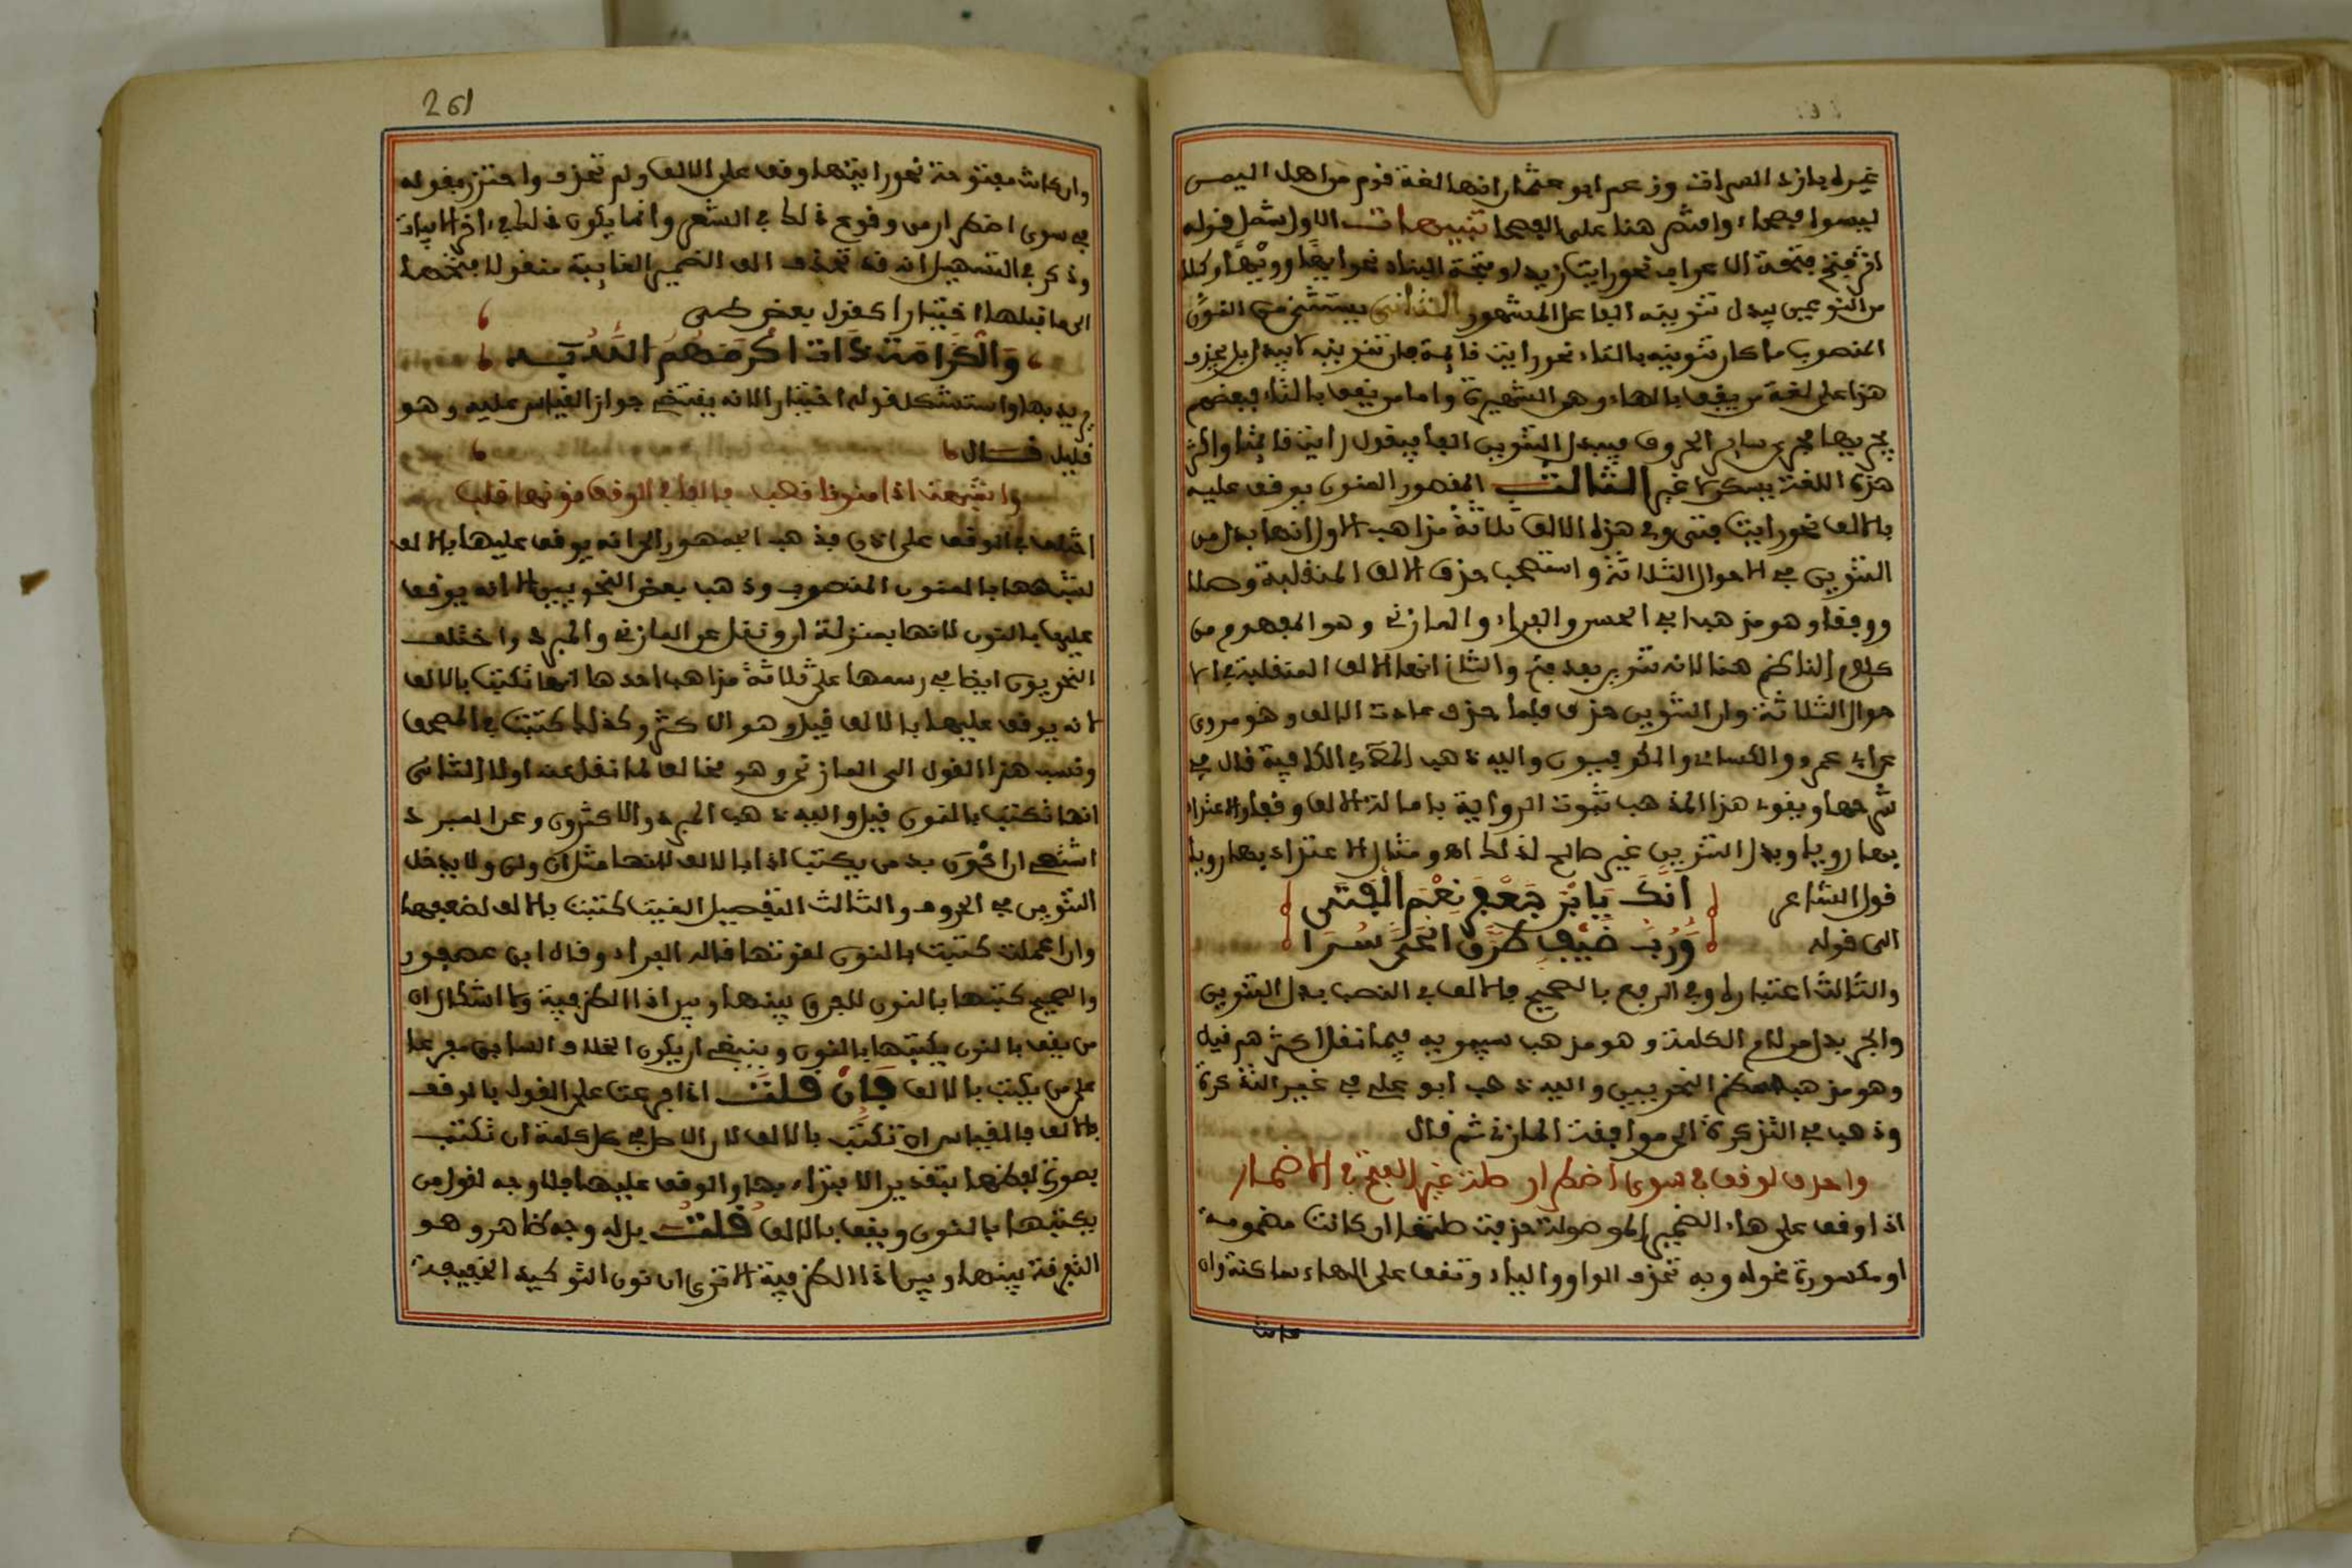 غيره بازد السراة وزعم ابو عثمان انها لغة قوم من اهل اليمن
ليسوا فصحاء وافتصر هنا على الفصحا تنبيهات الاول شمل قوله
اثر فتح فتحة الاعراب نحو رايت زيدا وفتحة البناء نحو ايها وويها وكلا
من النوعين يبدل تنوينه الفا على المشهور الثاني يستثنى من المنون
المنصوب ما كان تنوينه بالتاء نحو رايت قائمة فان تنوينه لا يبدل بل يحذف
هذا على لغة من يقف بالهاء وهي الشهيرة واما من يقف بالتاء فبعضهم
يجريها مجرى ساير الحروف فيبدل التنوين الفا فيقول رايت قائمتا واكثر
هذه اللغة يسكن لا غير الثالث المقصور المنون يوقف عليه
بالالف نحو رايت فتى وفي هذه الالف ثلاثة مذاهب الاول انها بدل من
التنوين في الاحوال الثلاثة واستصحب حذف الالف المنقلبة وصلا
ووقفا وهو مذهب ابي الحسن والفراء والمازني وهو المفهوم من
كلام الناظم هنا لانه تنوين بعد فتح والثاني انها الالف المنقلبة في الا
حوال الثلاثة وان التنوين حذف فلما حذف عادت الالف وهو مروي
عن ابي عمرو والكسائي والكوفيين واليه ذهب المص في الكافية قال في
شرحها ويقوي هذا المذهب ثبوت الرواية بامالة الالف وقفا والاعتداد
بها رويا وبدل التنوين غير صالح لذلك اه ومثال الاعتداد بها رويا
قول الشاعر انك يا ابن جعفر نعم الفتى
الى قوله ورب ضيف طرق الحي سرا
والثالث اعتباره وفي الرفع بالصحيح فالالف في النصب بدل التنوين
والجر بدل من لام الكلمة وهو مذهب سيبويه فيما نقل اكثرهم قيل
وهو مذهب معظم النحويين واليه ذهب ابو علي في غير التذكرة
وذهب في التذكرة الى موافقة المازني ثم قال
واحذف لوقف في سوى اضطرار صلة غير الفتح في الاضمار
اذا وقف على هاء الضمير الموصولة حذفت صلتها ان كانت مضمومة
او مكسورة نحو له وبه تحذف الواو والياء وتقف على الهاء ساكنة وان
كانت
261
وان كانت مفتوحة نحو رايتها وقف على الالف ولم تحذف واحترز بقوله
في سوى اضطرار من وقوع ذلك في الشعر وانما يكون ذلك في اخر الابيات
وذكر في التسهيل انه قد تحذف الف الضمير الغايبة منقولا فتحها
الى ما قبلها اختيارا كقول بعض طي
والكرامة ذات اكرمكم الله به
يريد بها واستشكل قوله اختيارا لانه يقتضي جواز القياس عليه وهو
قليل قال
واشبهت اذا منونا نصب فالفا في الوقف نونها قلب
اختلف في الوقف على اذن فذهب الجمهور الى انه يوقف عليها بالالف
لشبهها بالمنون المنصوب وذهب بعض النحويين الى انه يوقف
عليها بالنون لانها بمنزلة ان ونقل عن المازني والمبرد واختلف
النحويون ايضا في رسمها على ثلاثة مذاهب احدها انها تكتب بالالف
لانه يوقف عليها بالالف قيل وهو الاكثر وكذلك كتبت في المصحف
ونسب هذا القول الى المازني وهو مخالف لما نقل عنه اولا الثاني
انها تكتب بالنون قيل واليه ذهب المبرد والاكثرون وعن المبرد
اشتهي ان اكوي يد من يكتب اذا بالالف لانها مثل ان ولن ولا يدخل
التنوين في الحروف والثالث التفصيل الغيت كتبت بالالف لضعفها
وان اعملت كتبت بالنون لقوتها قاله الفراء وقال ابن عصفور
والصحيح كتبها بالنون للفرق بينها وبين اذا الظرفية ولا اشكال ان
من يقف بالنون يكتبها بالنون وينبغي ان يكون الخلاف السابق مفرعا
على من يكتب بالالف فان قلت اذا فرعت على القول بالوقف
بالالف فالقياس ان تكتب بالالف لان الاصل في كل كلمة ان تكتب
بصورة لفظها بتقدير الابتداء بها والوقف عليها فلا وجه لقول من
يكتبها بالنون ويقف بالالف قلت بل له وجه ظاهر وهو
التفرقة بينها وبين اذا الظرفية الا ترى ان نون التوكيد الخفيفة